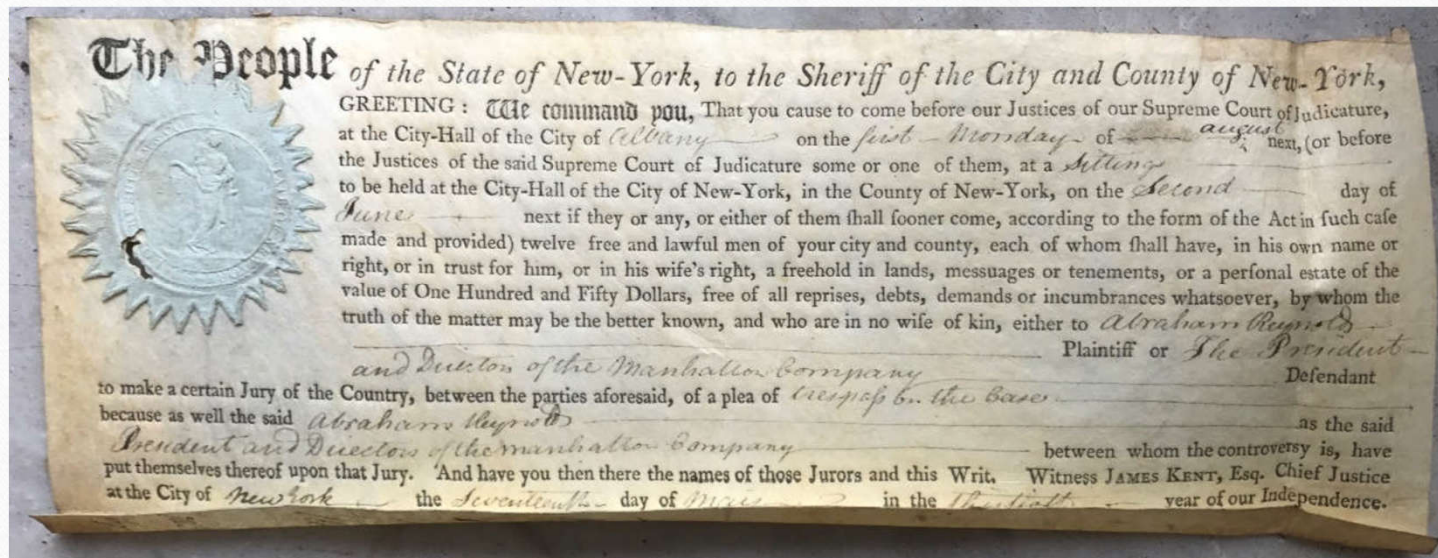 The People of the State of New-York, to the Sheriff of the City and County of New-York,
GREETING: We command you, That you cause to come before our Justices of our Supreme Court of Judicature,
at the City-Hall of the City of Albany on the first Monday of august next, (or before
the Justices of the said Supreme Court of Judicature some or one of them, at a Sittings
to be held at the City-Hall of the City of New-York, in the County of New-York, on the Second day of
June next if they or any, or either of them ſhall ſooner come, according to the form of the Act in ſuch caſe
made and provided) twelve free and lawful men of your city and county, each of whom ſhall have, in his own name or
right, or in trust for him, or in his wife's right, a freehold in lands, messuages or tenements, or a perſonal estate of the
value of One Hundred and Fifty Dollars, free of all reprises, debts, demands or incumbrances whatsoever, by whom the
truth of the matter may be the better known, and who are in no wiſe of kin, either to Abraham Reynolds
Plaintiff or The President
and Directors of the Manhattan Company Defendant
to make a certain Jury of the Country, between the parties aforesaid, of a plea of trespaſs on the Case
because as well the said Abraham Reynolds as the said
President and Directors of the manhattan Company between whom the controversy is, have
put themselves thereof upon that Jury. And have you then there the names of those Jurors and this Writ. Witness JAMES KENT, Esq. Chief Justice
at the City of New York the Seventeenth day of in the year of our Independence.